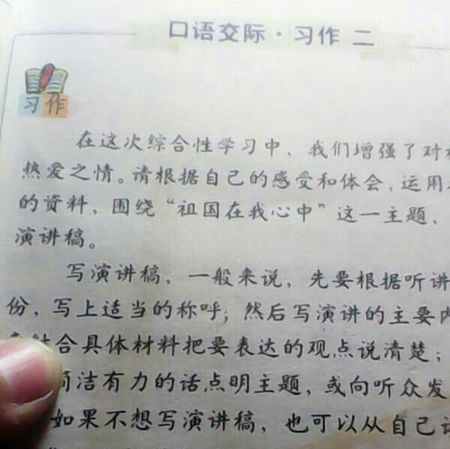 口语交际·习作 二
习作
在这次综合性学习中,我们增强了对
热爱之情。请根据自己的感受和体会,运用
的资料,围绕“祖国在我心中”这一主题,
演讲稿。
写演讲稿,一般来说,先要根据听讲
份,写上适当的称呼;然后写演讲的主要内
结合具体材料把要表达的观点说清楚;
简洁有力的话点明主题,或向听众发
如果不想写演讲稿,也可以从自己